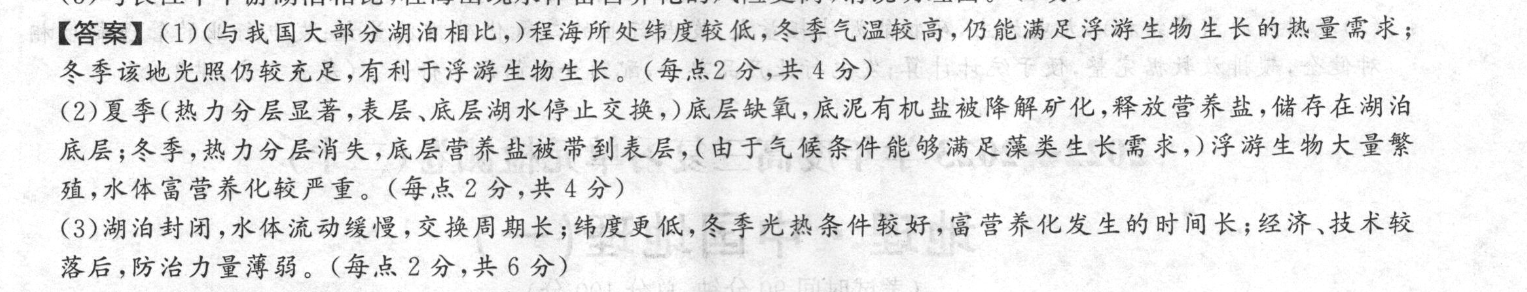 【答案】(1)(与我国大部分湖泊相比,)程海所处纬度较低,冬季气温较高,仍能满足浮游生物生长的热量需求;
冬季该地光照仍较充足,有利于浮游生物生长。(每点2分,共4分)
(2)夏季(热力分层显著,表层、底层湖水停止交换,)底层缺氧,底泥有机盐被降解矿化,释放营养盐,储存在湖泊
底层;冬季,热力分层消失,底层营养盐被带到表层,(由于气候条件能够满足藻类生长需求,)浮游生物大量繁
殖,水体富营养化较严重。(每点2分,共4分)
(3)湖泊封闭,水体流动缓慢,交换周期长;纬度更低,冬季光热条件较好,富营养化发生的时间长;经济、技术较
落后,防治力量薄弱。(每点2分,共6分)